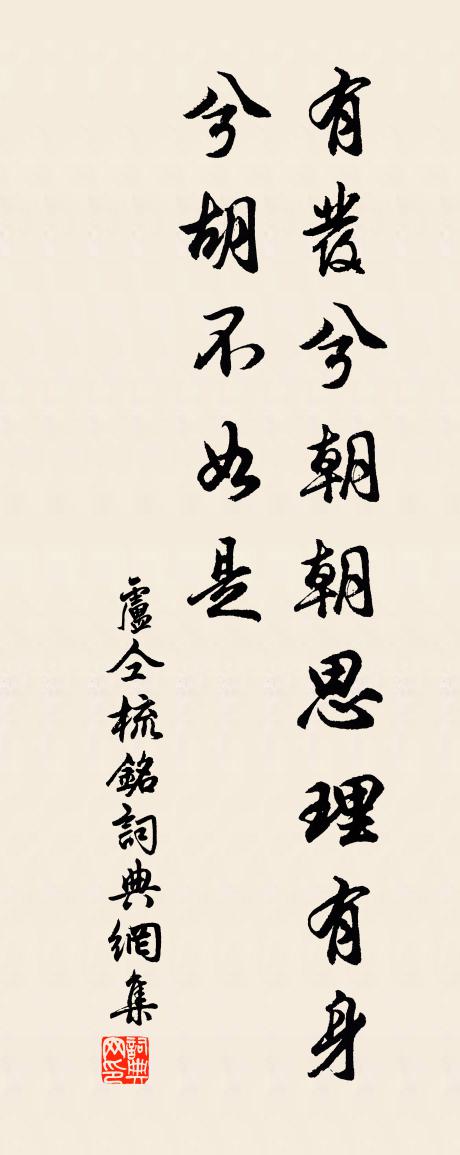 有發兮朝朝思理有身
兮胡不如是
盧仝梳銘詞典網集
詞典网印